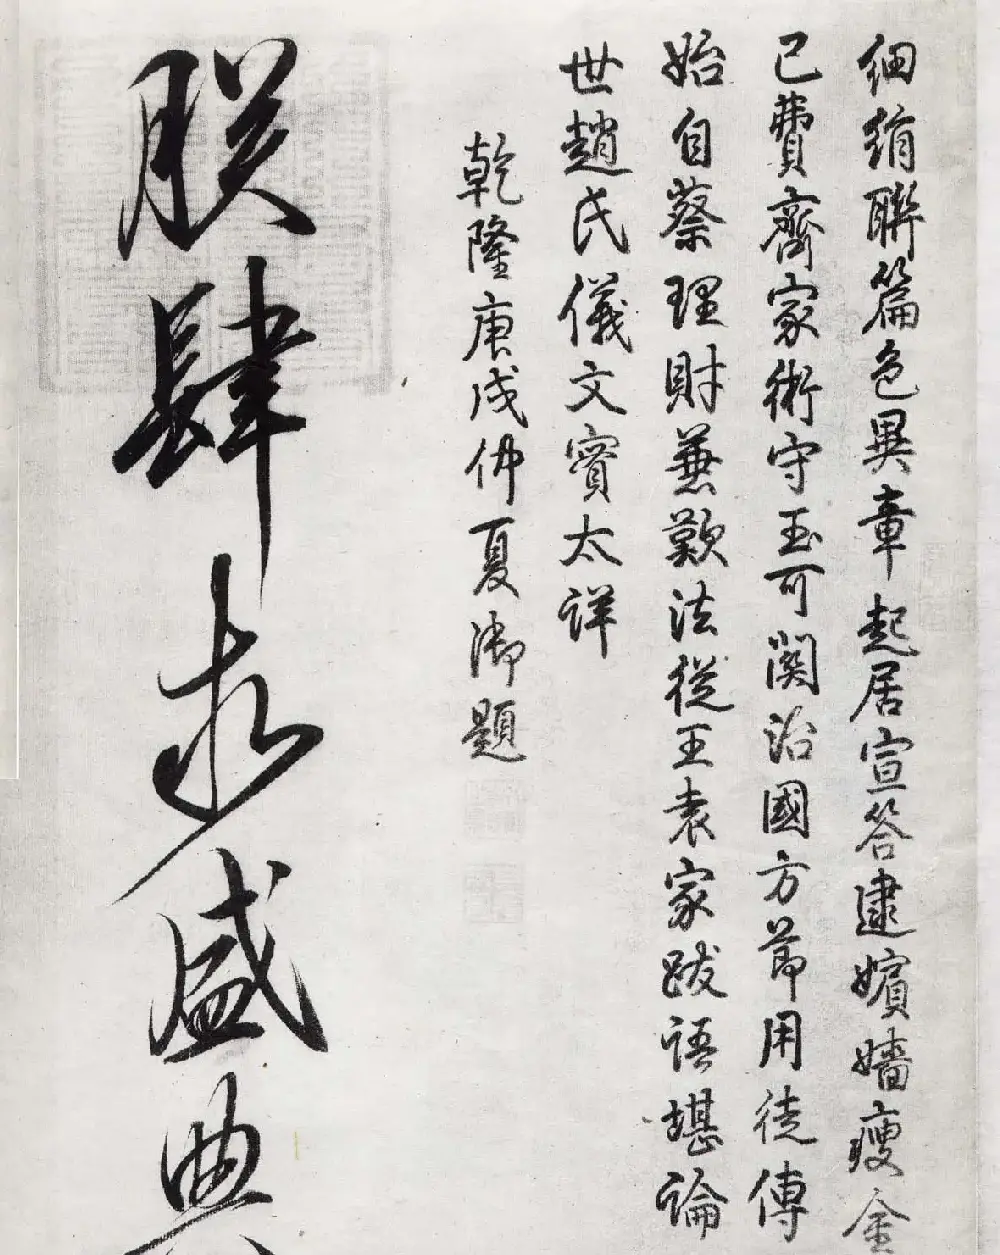 細絹聯篇色異章起居宣答逮嬪嬙瘦金
已費齊家術守玉可關治國方節用徒傳
始自蔡理財兼歎法從王袁家跋語堪論
世趙氏儀文賓太詳
乾隆庚戌仲夏御題
朕肆求盛典